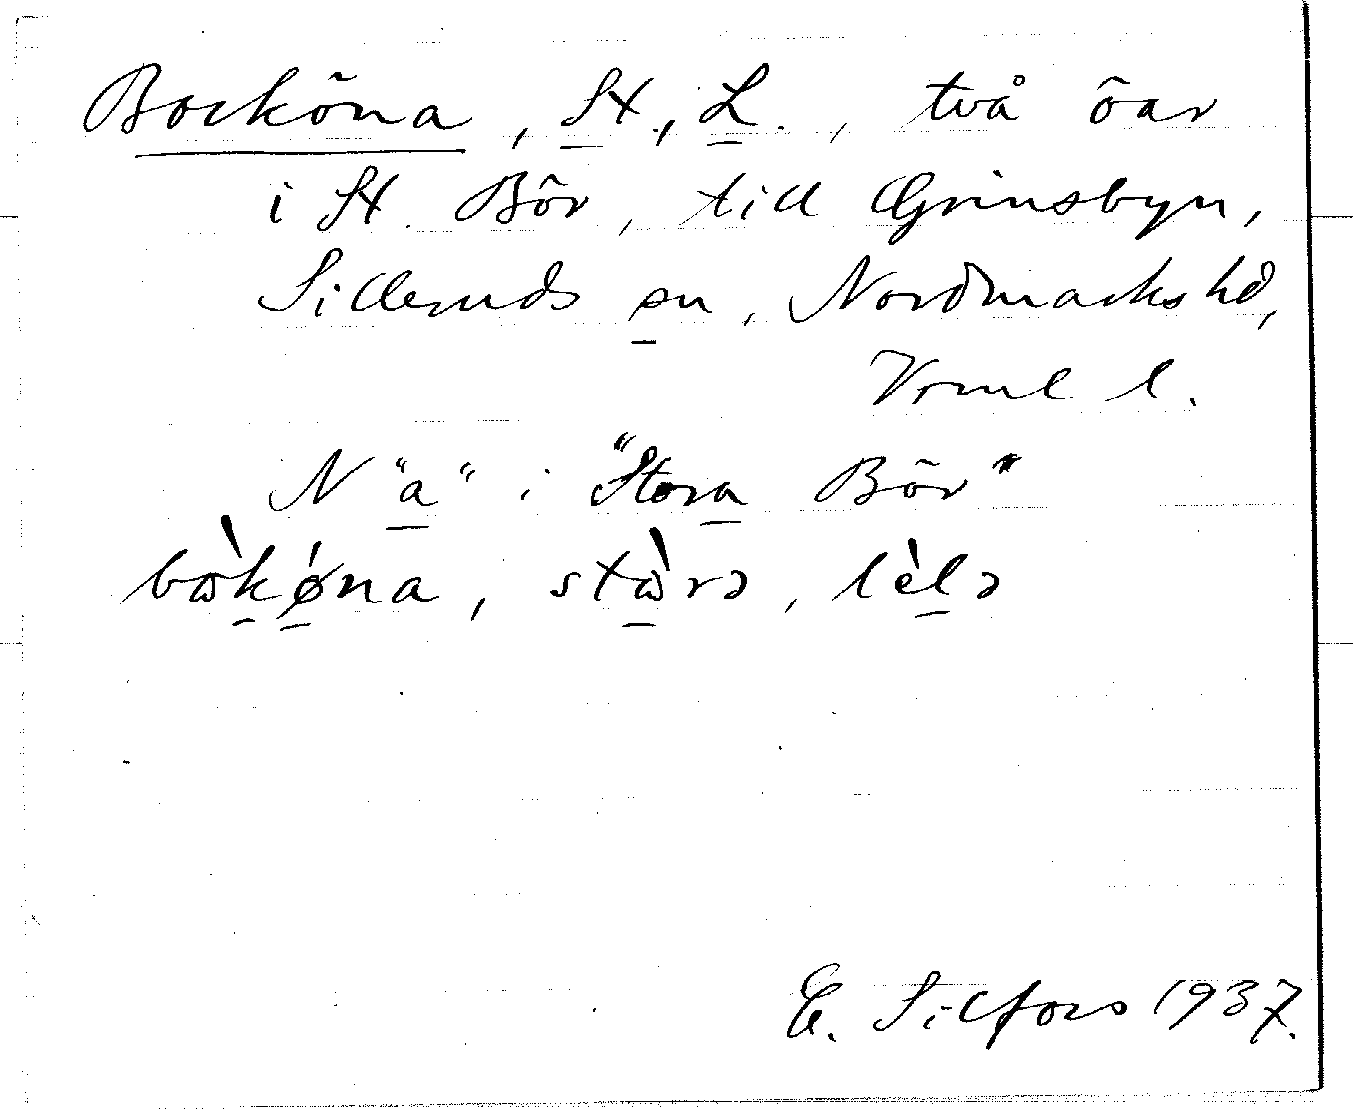 Bocköna, St., L., två öar
i St. Bör, till Grinsbyn,
Silleruds sn, Nordmarks hd,
Vrml l.
N "a" i "Stora Bör"
bωkǿna, stωrɔ, lèlɔ
E. Silfors 1937.